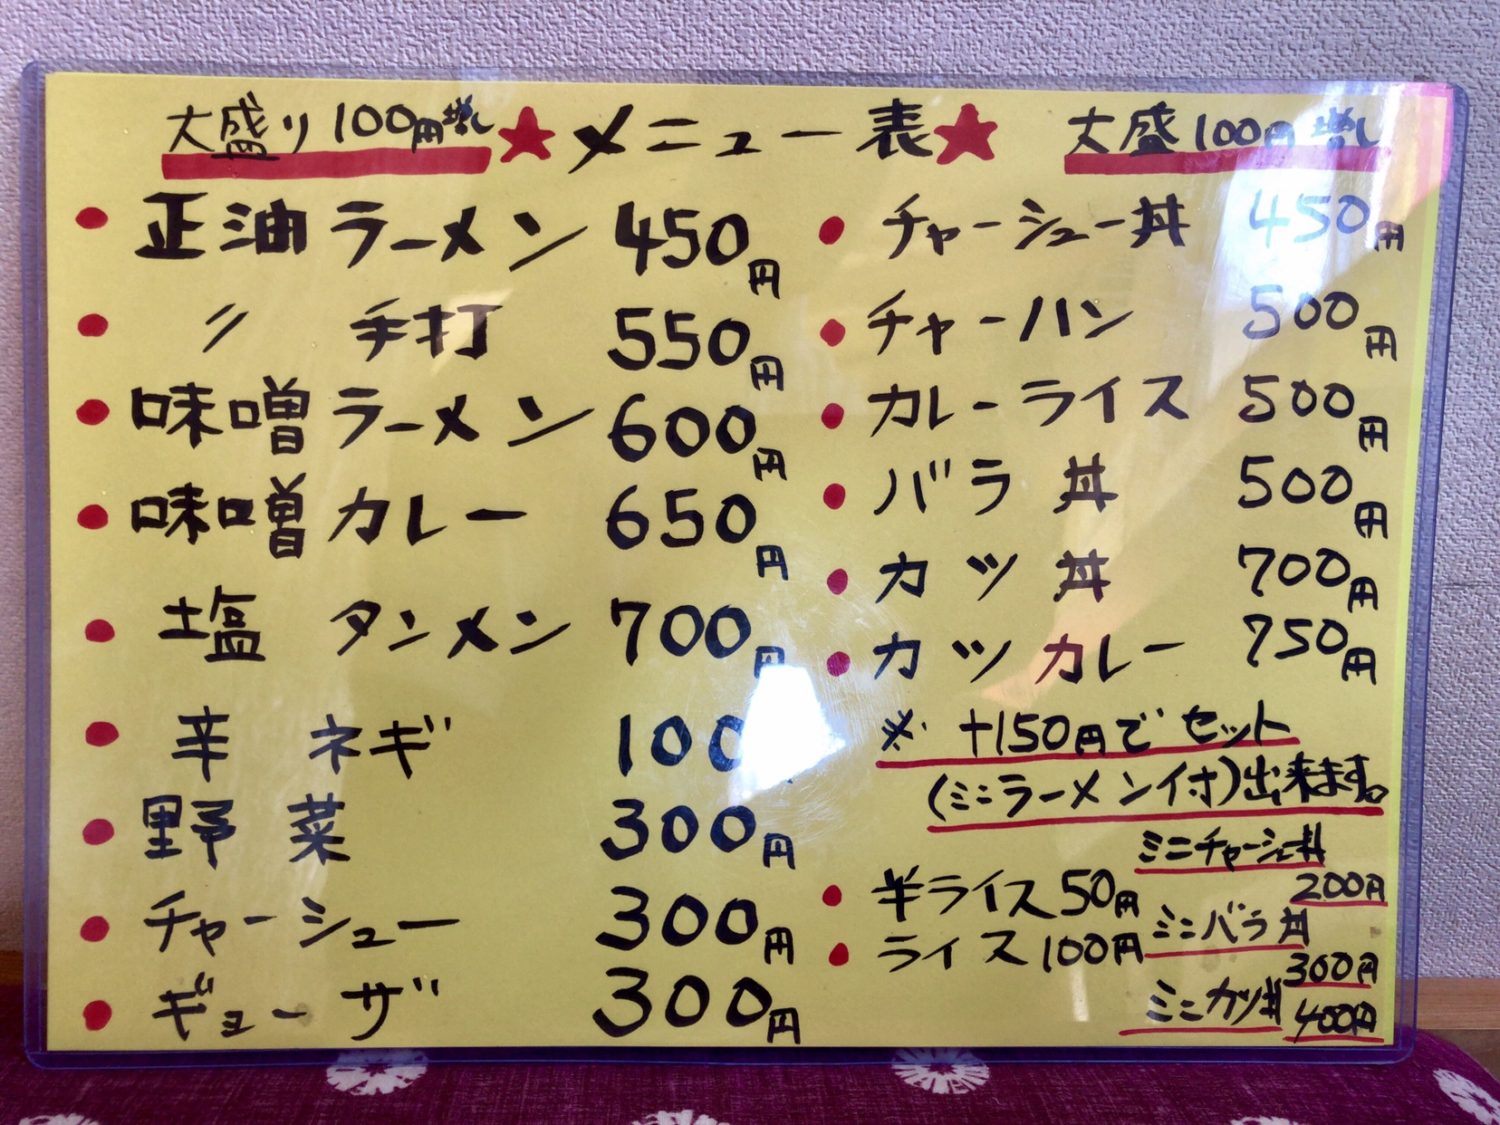 大盛り100円増し ★メニュー表★ 大盛100円増し
● 正油ラーメン 450円
● 〃 手打 550円
● 味噌ラーメン 600円
● 味噌カレー 650円
● 塩 タンメン 700円
● 辛 ネギ 100
● 野菜 300円
● チャーシュー 300円
● ギョーザ 300円
● チャーシュー丼 450円
● チャーハン 500円
● カレーライス 500円
● バラ丼 500円
● カツ丼 700円
● カツカレー 750円
※ +150円でセット
(ミニラーメン付)出来ます。
● 半ライス 50円
● ライス 100円
ミニチャーシュー丼
200円
ミニバラ丼
300円
ミニカツ丼
400円